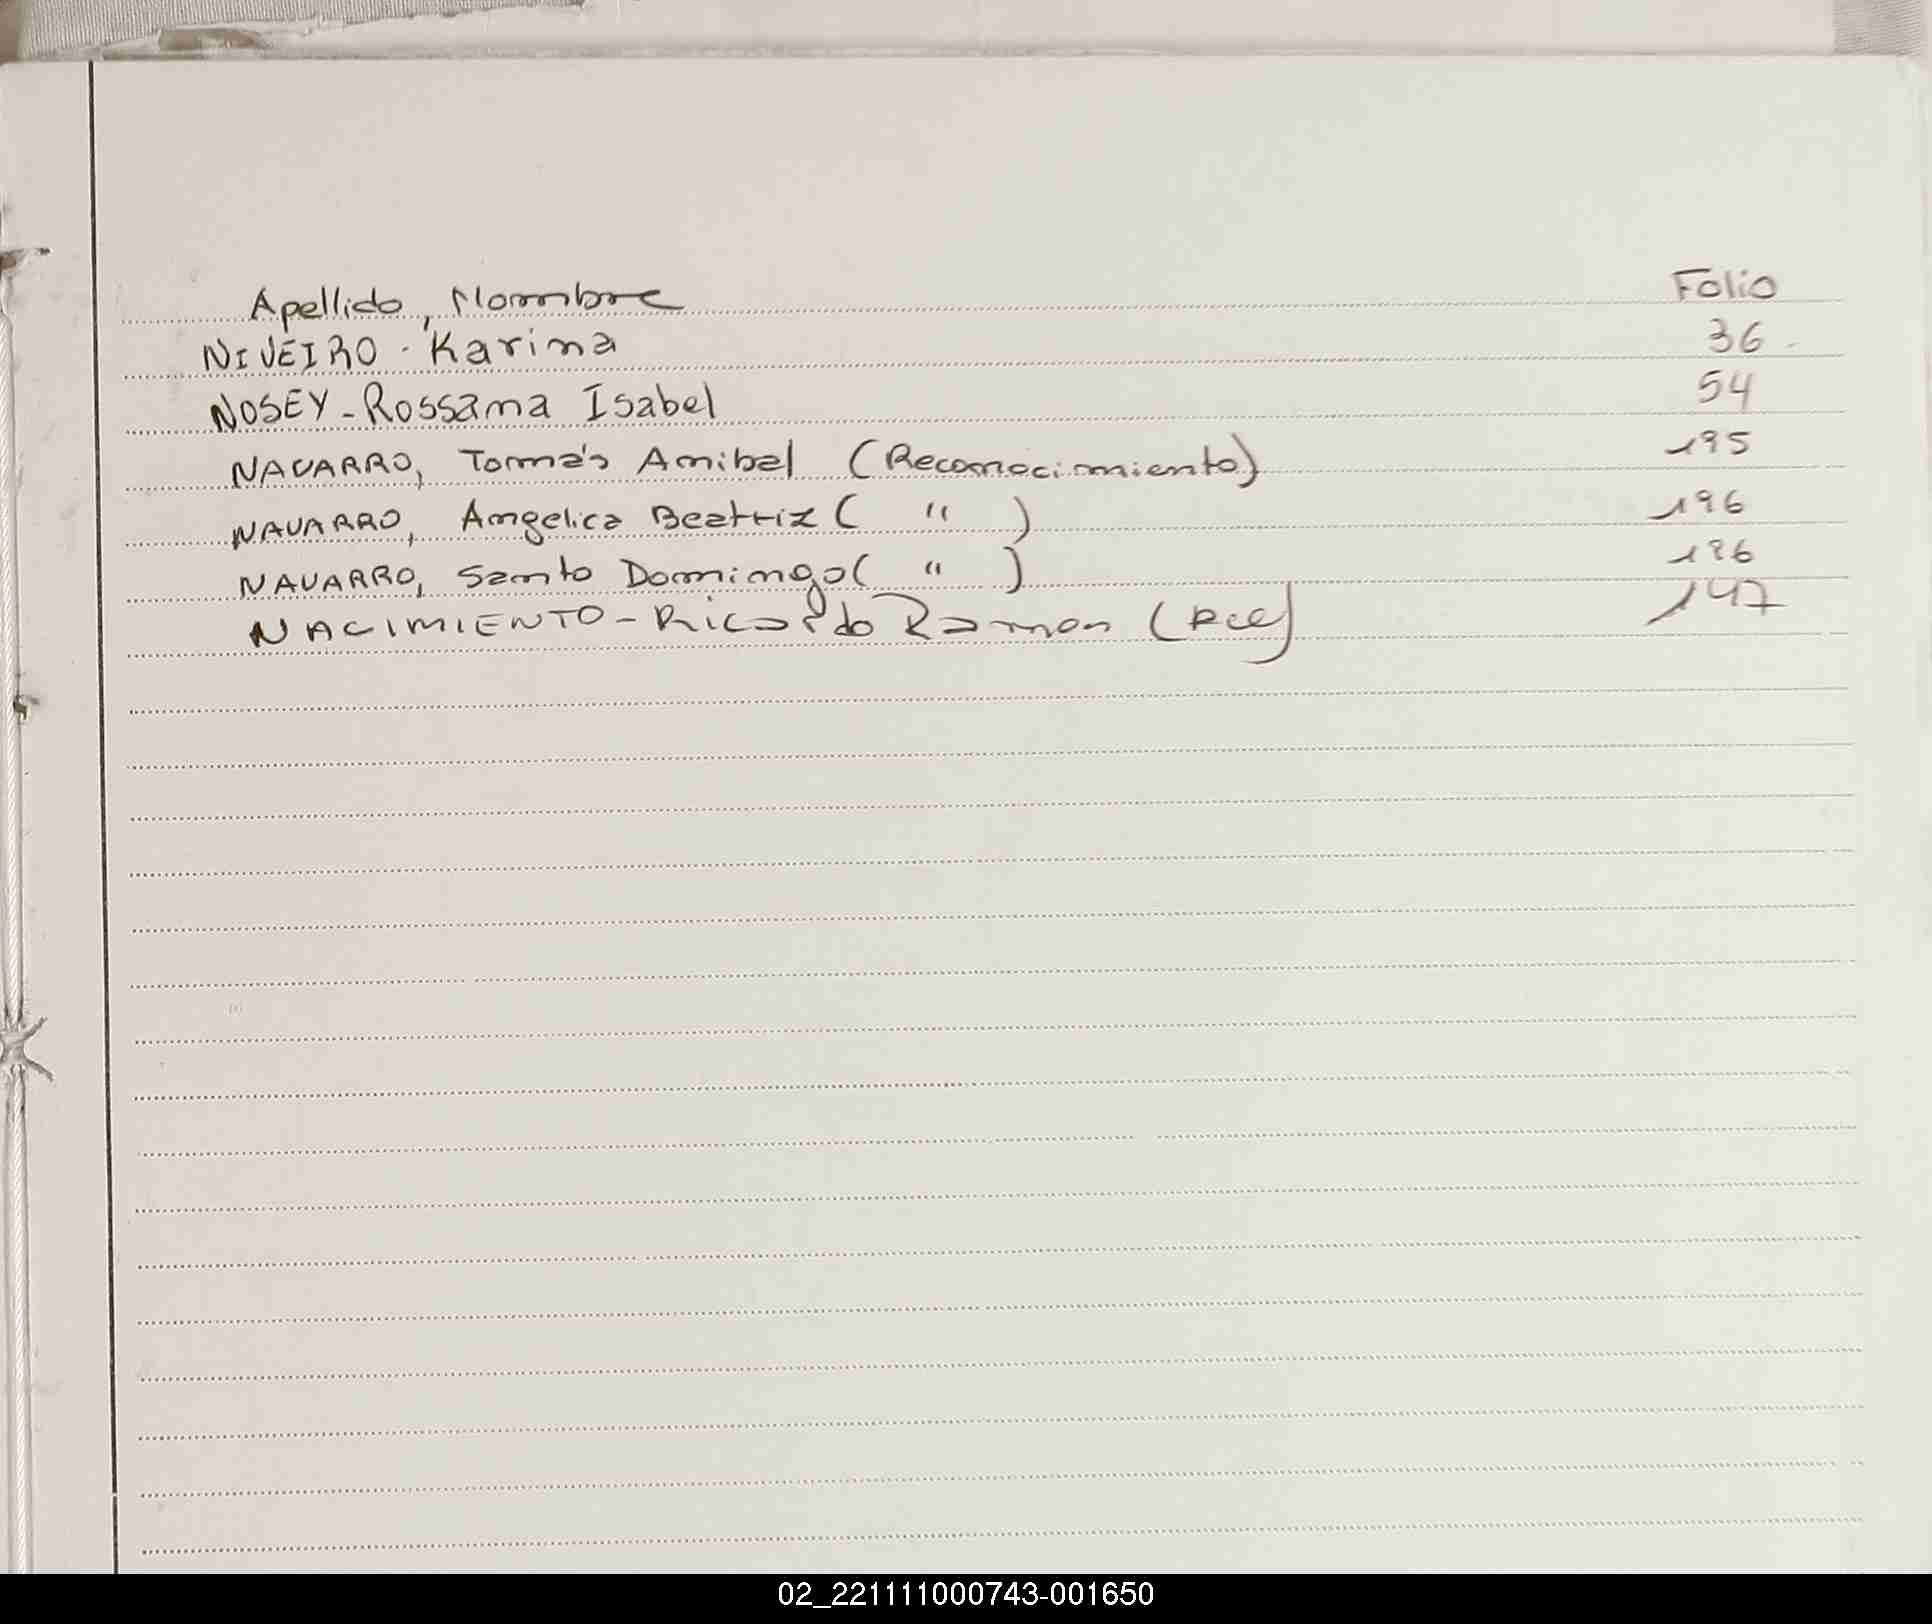 Apellido, Nombre Folio
NIVEIRO - Karina 36
NOSEY - Rossana Isabel 54
NAVARRO, Tomás Anibal (Reconocimiento) 195
NAVARRO, Angelica Beatriz ( " ) 196
NAVARRO, Santo Domingo ( " ) 196
NACIMIENTO - Ricardo Ramon (Rec) 147
02_221111000743-001650